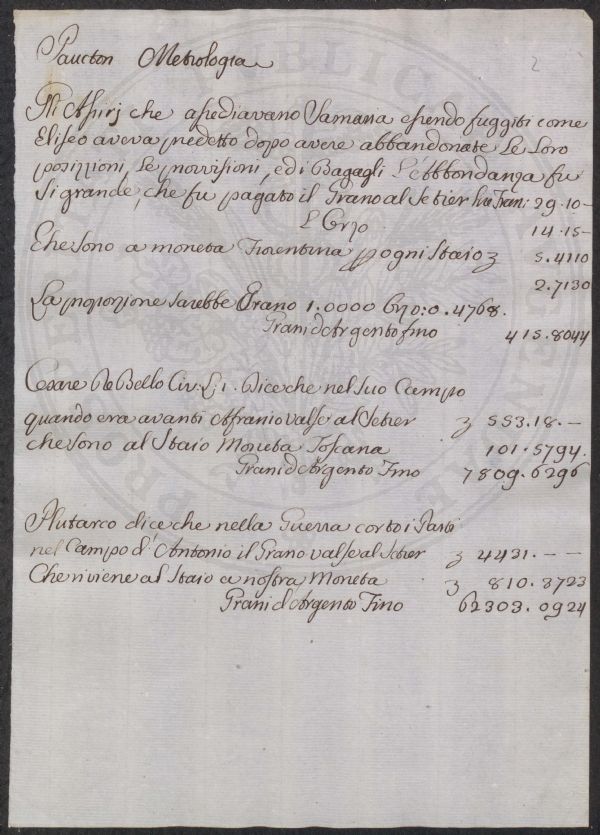 Paucton Metrologia
2
Gli Assirj che assediavano Samaria essendo fuggiti come
Eliseo aveva predetto dopo avere abbandonate Le Loro
posizzioni, Le provvisioni, ed i Bagagli L'ebbondanza fu
si grande, che fu pagato il Grano al Setier Lire Fran: 29.10—
L'Orzo 14.15—
Che sono a moneta Fiorentina p ogni Staio 5.4110
2.7130
La proporzione sarebbe Grano 1.0000 Orzo: 0.4768.
Grani d'Argento fino 415.8044
Cesare De Bello Civ: L: 1. Dice che nel suo Campo
quando era avanti Afranio valse al Setier 553.18.—
che sono al Staio Moneta Toscana 101.5794.
Grani d'Argento Fino 7809.6296
Plutarco dice che nella Guerra corto i Parti
nel Campo d'Antonio il Grano valse al Setier 4431.— —
Che riviene al Staio a nostra Moneta 810.3723
Grani d'Argento Fino 62303.0924